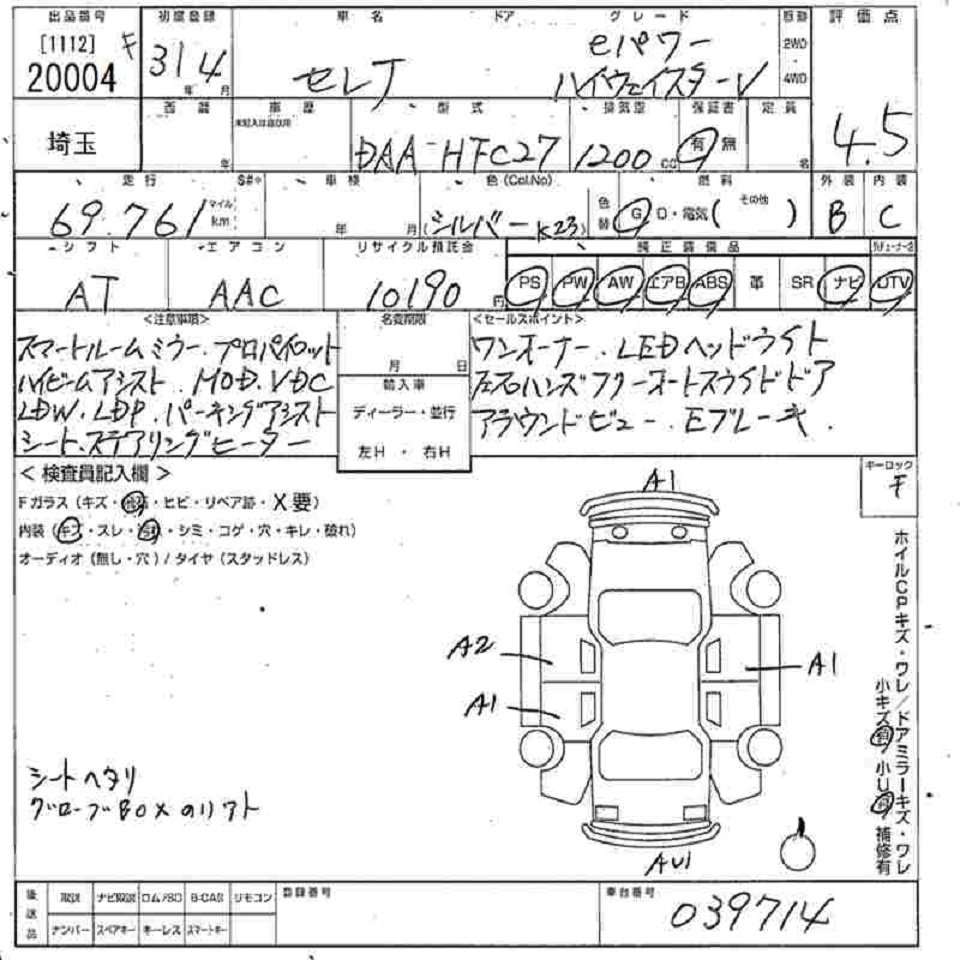 出品番号 初度登録 車名 ドア グレード 駆動 評価点
[1112] キ
20004
31 4
年 月
セレナ
eパワー
ハイウェイスターV
2WD
4WD
4.5
埼玉
西暦 車歴 型式 排気量 保証書 定員
未記入は自家用
年
DAA-HFC27
1200 cc
有・無
名
走行 車検 色(Col.No) 燃料 外装 内装
69.761 マイル km
年 月
(シルバー K23)
色替
G・D・電気( その他 )
B C
シフト エアコン リサイクル預託金 純正装備品
AT AAC 10190 円
PS PW AW エアB ABS 革 SR ナビ DTV
<注意事項>
スマートルームミラー.プロパイロット
ハイビームアシスト.MOD.VDC
LDW.LDP.パーキングアシスト
シート.ステアリングヒーター
名変期限
月 日
輸入車
ディーラー・並行
左H ・ 右H
<セールスポイント>
ワンオーナー.LEDヘッドライト
左右ハンズフリーオートスライドドア
アラウンドビュー.Eブレーキ.
<検査員記入欄>
Fガラス(キズ・・ヒビ・リペア跡・X要)
内装(キズ・スレ・・シミ・コゲ・穴・キレ・破れ)
オーディオ(無し・穴)/タイヤ(スタッドレス)
キーロック
キ
A1
A2
A1
A1
AU1
ホイルCPキズ・ワレ/ドアミラーキズ・ワレ
小キズ有 小U有 補修有
シートヘタリ
グローブBOXのリフト
後送品
取説 ナビ取説 ロム/SD B-CAS リモコン
ナンバー スペアキー キーレス スマートキー
登録番号
車台番号
039714